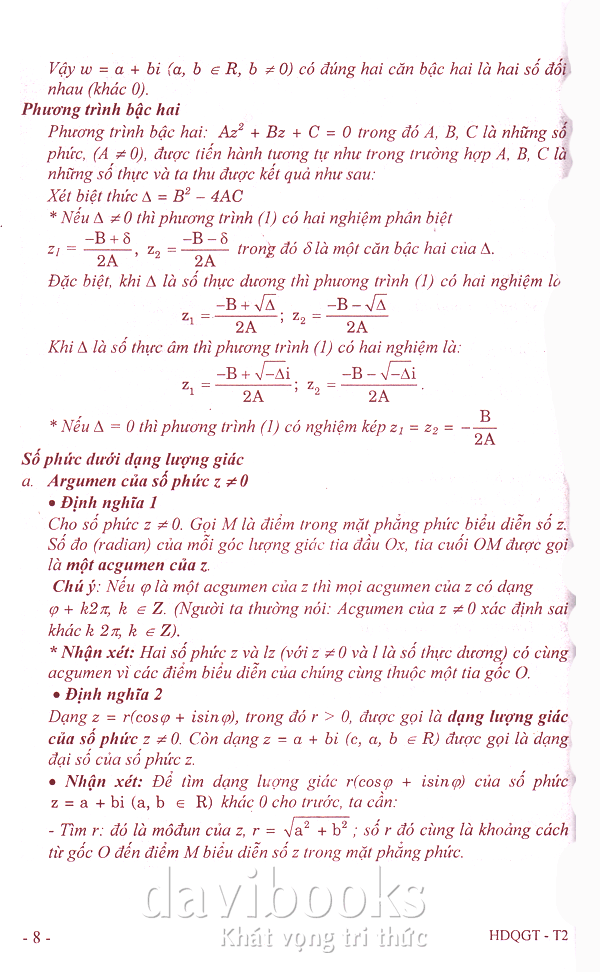 Vậy w = a + bi (a, b ∈ R, b ≠ 0) có đúng hai căn bậc hai là hai số đối
nhau (khác 0).
Phương trình bậc hai
Phương trình bậc hai: Az² + Bz + C = 0 trong đó A, B, C là những số
phức, (A ≠ 0), được tiến hành tương tự như trong trường hợp A, B, C là
những số thực và ta thu được kết quả như sau:
Xét biệt thức Δ = B² – 4AC
* Nếu Δ ≠ 0 thì phương trình (1) có hai nghiệm phân biệt
z₁ = (–B + δ)/2A, z₂ = (–B – δ)/2A trong đó δ là một căn bậc hai của Δ.
Đặc biệt, khi Δ là số thực dương thì phương trình (1) có hai nghiệm là
z₁ = (–B + √Δ)/2A; z₂ = (–B – √Δ)/2A
Khi Δ là số thực âm thì phương trình (1) có hai nghiệm là:
z₁ = (–B + √–Δi)/2A; z₂ = (–B – √–Δi)/2A.
* Nếu Δ = 0 thì phương trình (1) có nghiệm kép z₁ = z₂ = –B/2A
Số phức dưới dạng lượng giác
a. Argumen của số phức z ≠ 0
• Định nghĩa 1
Cho số phức z ≠ 0. Gọi M là điểm trong mặt phẳng phức biểu diễn số z.
Số đo (radian) của mỗi góc lượng giác tia đầu Ox, tia cuối OM được gọi
là một acgumen của z.
Chú ý: Nếu φ là một acgumen của z thì mọi acgumen của z có dạng
φ + k2π, k ∈ Z. (Người ta thường nói: Acgumen của z ≠ 0 xác định sai
khác k 2π, k ∈ Z).
* Nhận xét: Hai số phức z và lz (với z ≠ 0 và l là số thực dương) có cùng
acgumen vì các điểm biểu diễn của chúng cùng thuộc một tia gốc O.
• Định nghĩa 2
Dạng z = r(cosφ + isinφ), trong đó r > 0, được gọi là dạng lượng giác
của số phức z ≠ 0. Còn dạng z = a + bi (c, a, b ∈ R) được gọi là dạng
đại số của số phức z.
• Nhận xét: Để tìm dạng lượng giác r(cosφ + isinφ) của số phức
z = a + bi (a, b ∈ R) khác 0 cho trước, ta cần:
- Tìm r: đó là môđun của z, r = √(a² + b²); số r đó cũng là khoảng cách
từ gốc O đến điểm M biểu diễn số z trong mặt phẳng phức.
davibooks
Khát vọng tri thức
- 8 -
HDQGT - T2